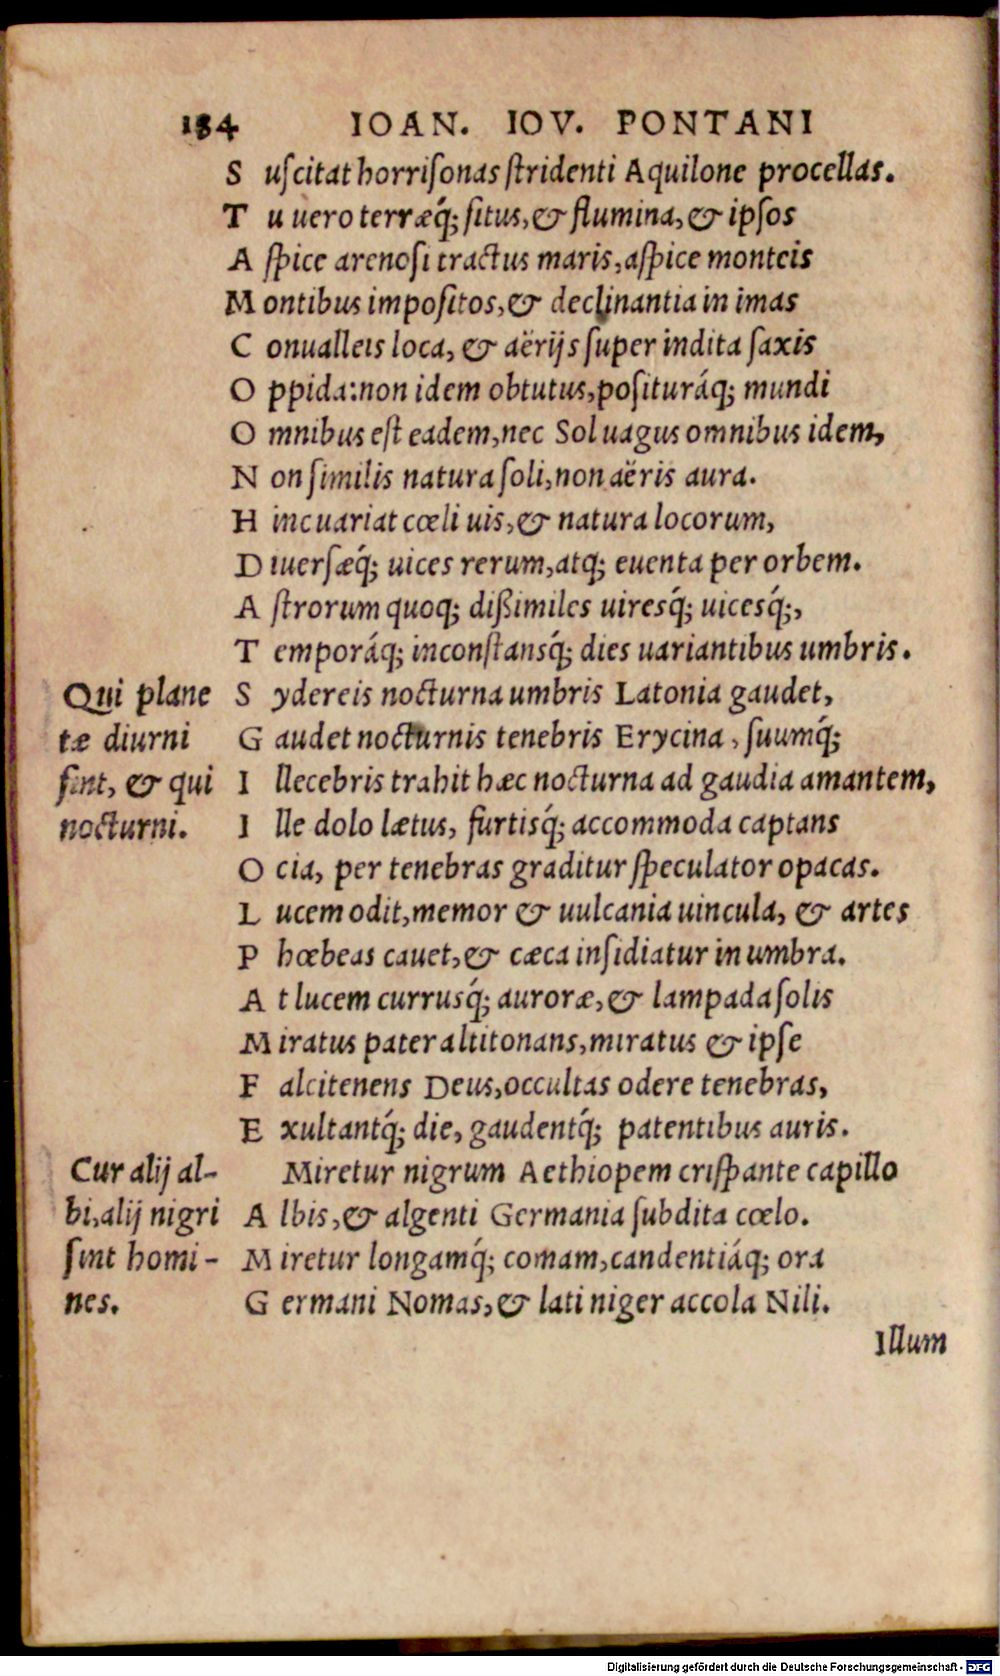 184 IOAN. IOV. PONTANI
S uſcitat horriſonas ſtridenti Aquilone procellas.
T u uero terræq́; ſitus, & flumina, & ipſos
A ſpice arenoſi tractus maris, aſpice monteis
M ontibus impoſitos, & declinantia in imas
C onualleis loca, & aërijs ſuper indita ſaxis
O ppida: non idem obtutus, poſituráq; mundi
O mnibus eſt eadem, nec Sol uagus omnibus idem,
N on ſimilis natura ſoli, non aëris aura.
H inc uariat cœli uis, & natura locorum,
D iuerſæq́; uices rerum, atq; euenta per orbem.
A ſtrorum quoq; dißimiles uiresq́; uicesq́;,
T emporáq; inconſtansq́; dies uariantibus umbris.
Qui plane S ydereis nocturna umbris Latonia gaudet,
tæ diurni G audet nocturnis tenebris Erycina, ſuumq́;
ſint, & qui I llecebris trahit hæc nocturna ad gaudia amantem,
nocturni. I lle dolo lætus, furtisq́; accommoda captans
O cia, per tenebras graditur ſpeculator opacas.
L ucem odit, memor & uulcania uincula, & artes
P hœbeas cauet, & cæca inſidiatur in umbra.
A t lucem currusq́; auroræ, & lampada ſolis
M iratus pater altitonans, miratus & ipſe
F alcitenens Deus, occultas odere tenebras,
E xultantq́; die, gaudentq́; patentibus auris.
Cur alij al- Miretur nigrum Aethiopem criſpante capillo
bi, alij nigri A lbis, & algenti Germania ſubdita cœlo.
ſint homi- M iretur longamq́; comam, candentiáq; ora
nes. G ermani Nomas, & lati niger accola Nili.
Illum
Digitalisierung gefördert durch die Deutsche Forschungsgemeinschaft - DFG